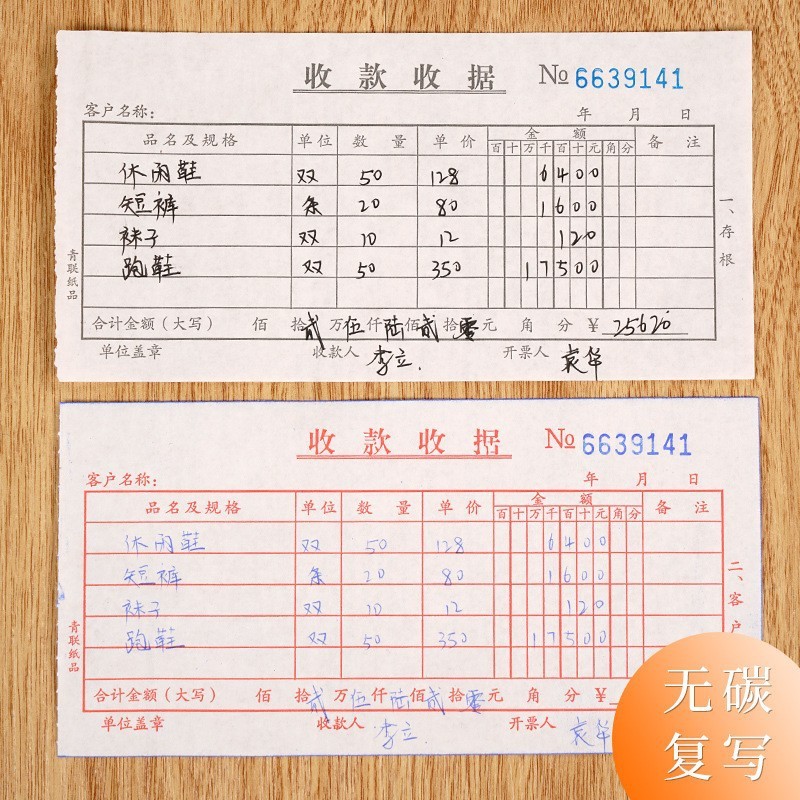 收款收据 № 6639141
客户名称： 年 月 日
品名及规格 单位 数量 单价 金额 备注
百十万千百十元角分
休闲鞋 双 50 128 6400
短裤 条 20 80 1600
袜子 双 10 12 120
跑鞋 双 50 350 17500
一、存根
青联纸品
合计金额（大写） 佰 拾贰万伍仟陆佰贰拾零元 角 分 ￥25620
单位盖章 收款人 李立. 开票人 袁华
收款收据 № 6639141
客户名称： 年 月 日
品名及规格 单位 数量 单价 金额 备注
百十万千百十元角分
休闲鞋 双 50 128 6400
短裤 条 20 80 1600
袜子 双 10 12 120
跑鞋 双 50 350 17500
二、客户
青联纸品
合计金额（大写） 佰 拾贰万伍仟陆佰贰拾零元 角 分 ￥
单位盖章 收款人 李立. 开票人 袁华
无碳
复写